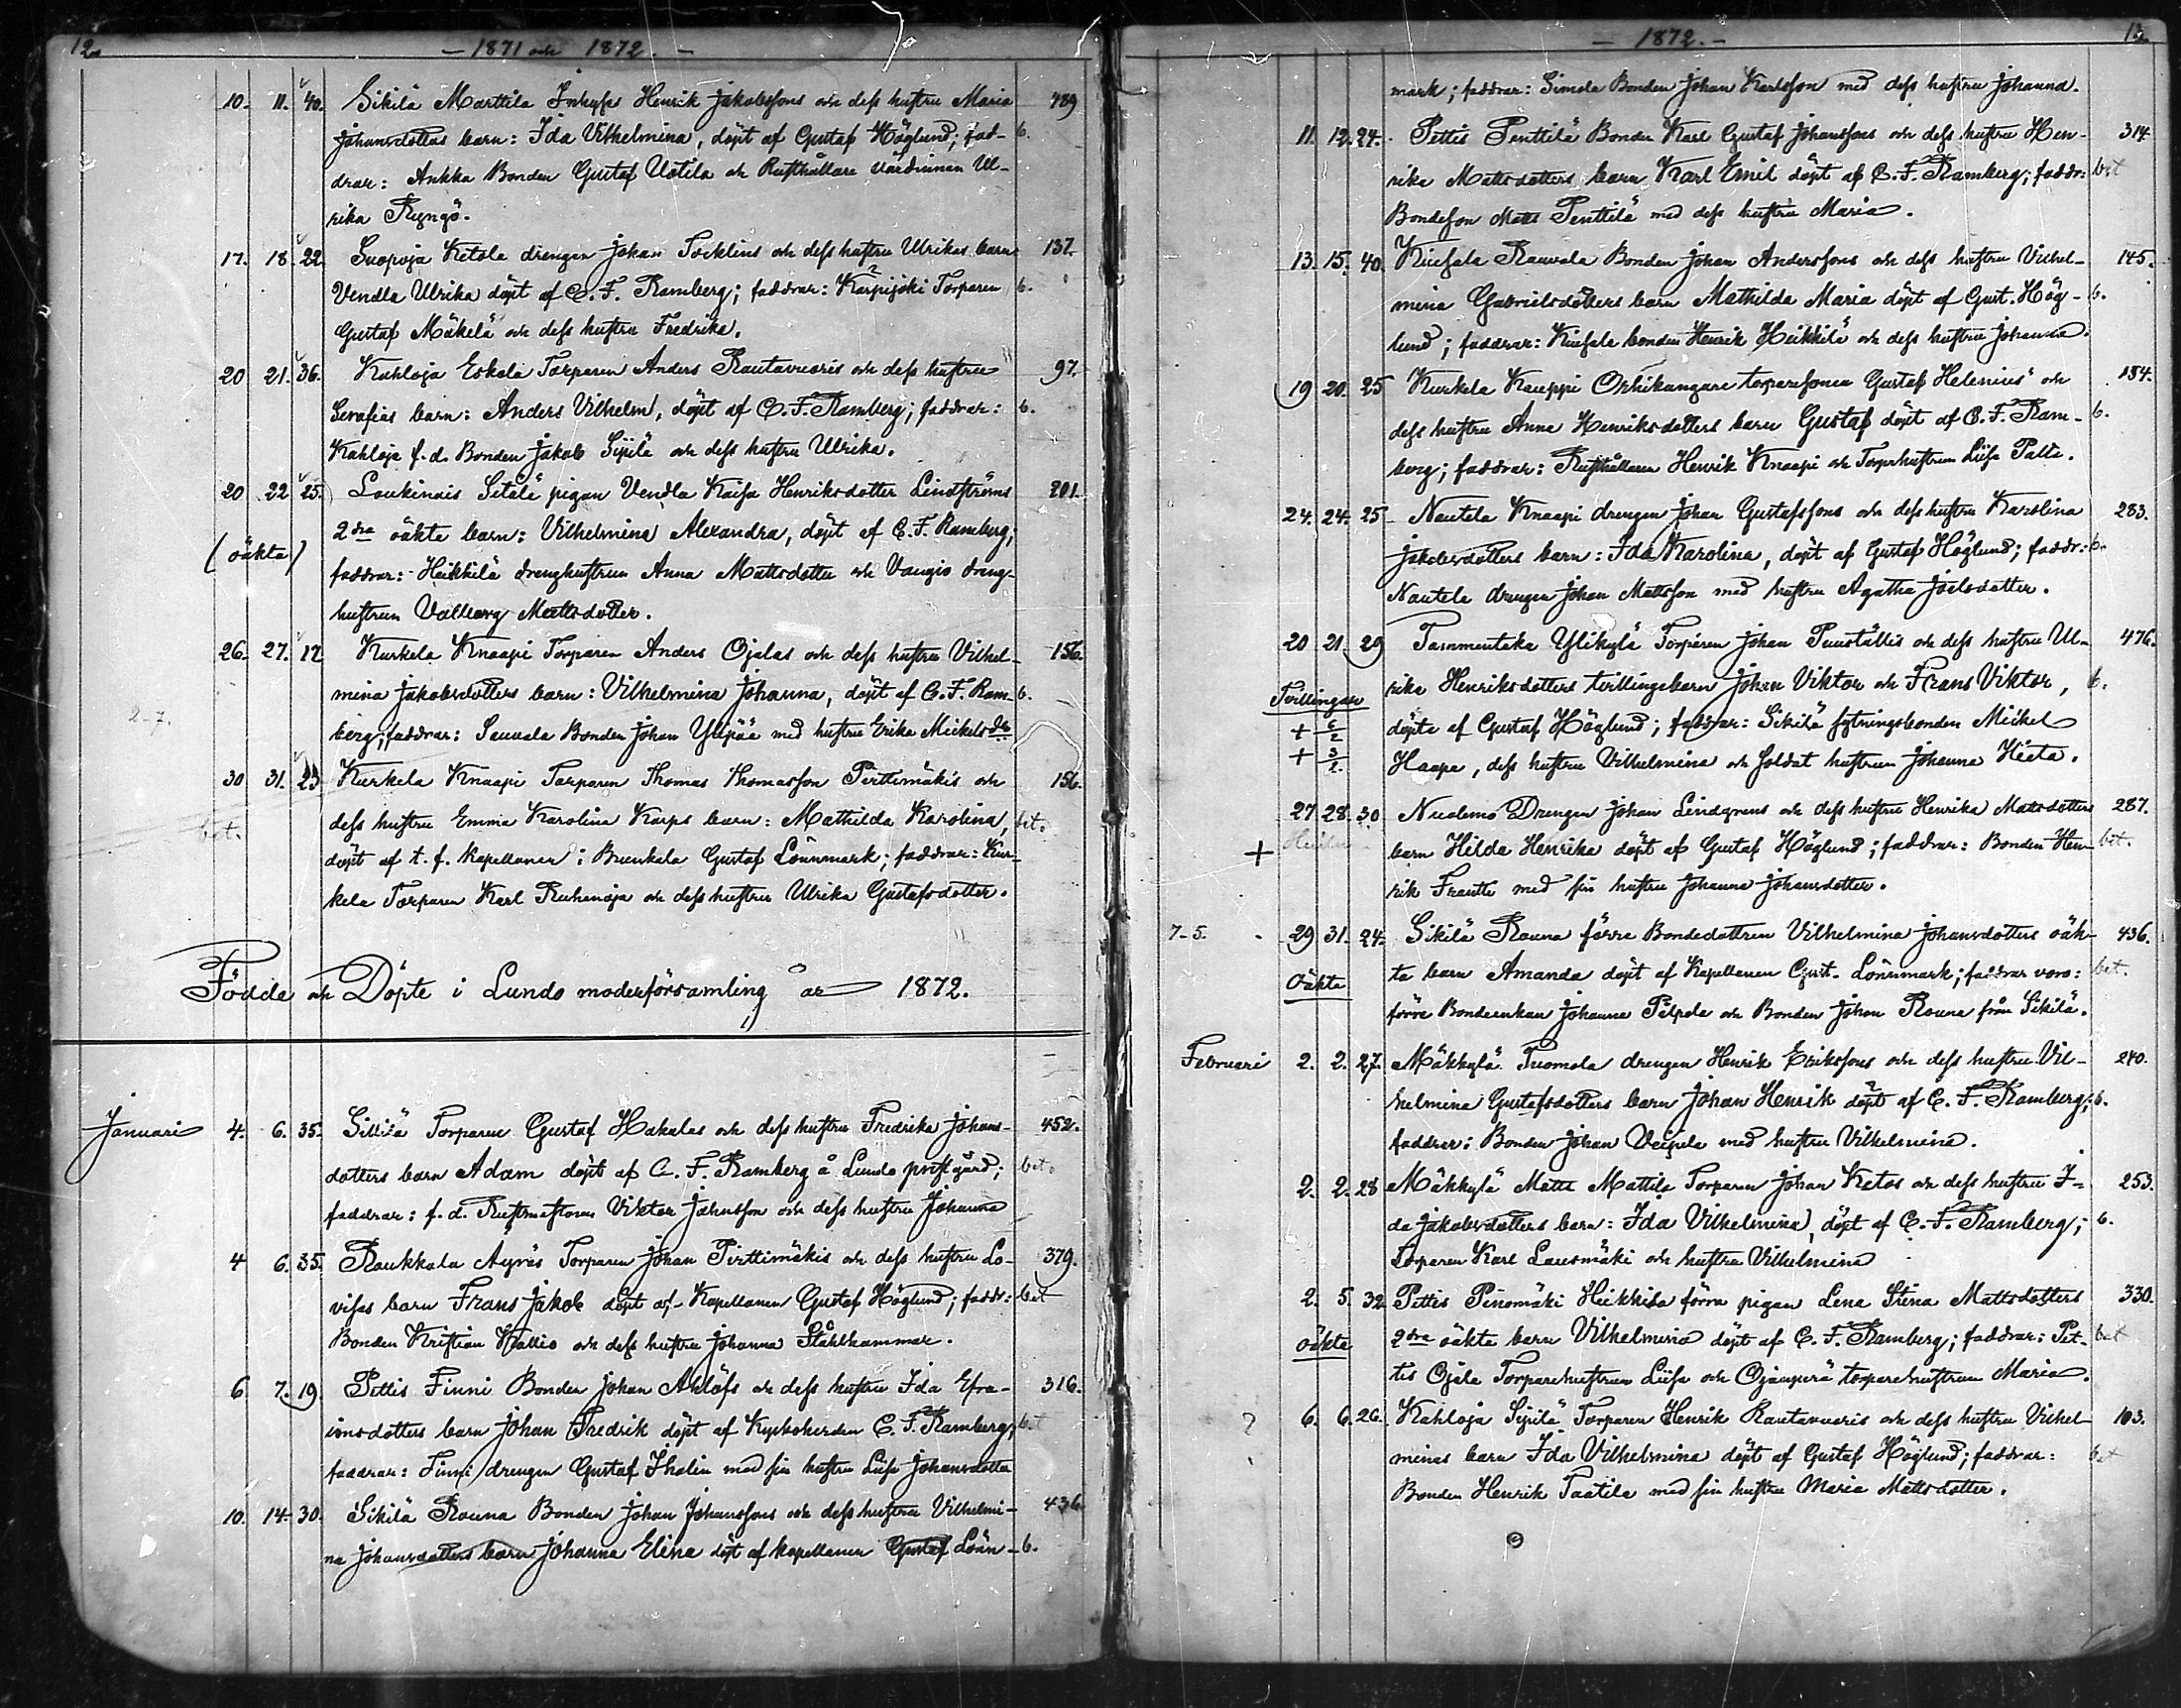 12.
- 1871 och 1872. -
10. 11. 40. Sikilä Marttila Inhyses Henrik Jakobssons och dess hustru Maria 489
Johansdotters barn: Ida Vilhelmina, döpt af Gustaf Höglund; fad- b.
drar: Ankka Bonden Gustaf Uotila och Rusthållare värdinnan Ul-
rika Ryngö.
17. 18. 22. Suopoja Ketola drengen Johan Tocklins och dess hustru Ulrikas barn 137.
Vendla Ulrika döpt af C. F. Ramberg; faddrar: Karpijoki Torparen b.
Gustaf Mäkelä och dess hustru Fredrika.
20 21. 36. Kahloja Eskola Torparen Anders Rautavuoris och dess hustru 97.
Serafias barn: Anders Vilhelm, döpt af C. F. Ramberg; faddrar: b.
Kahloja f. d. Bonden Jakob Sipilä och dess hustru Ulrika.
20 22 25. Loukinais Setälä pigan Vendla Kaisa Henriksdotter Lindströms 201.
(oäkta) 2dra oäkta barn: Vilhelmina Alexandra, döpt af C. F. Ramberg;
faddrar: Heikkilä drenghustrun Anna Mattsdotter och Vaugio dreng-
hustrun Valborg Mattsdotter.
26. 27. 17. Kurkela Knaapi Torparen Anders Ojalas och dess hustru Vilhel- 156.
mina Jakobsdotters barn: Vilhelmina Johanna, döpt af C. F. Ram- b.
2-7. berg; faddrar: Sauvala Bonden Johan Ylipää med hustru Erika Mickelsdtr
30 31. 23 Kurkela Knaapi Torparen Thomas Thomasson Pirttimäkis och 156.
bet. dess hustru Emma Karolina Karps barn: Mathilda Karolina, bet.
döpt af t. f. Kapellanen i Brunkala Gustaf Lönnmark; faddrar: Kur-
kela Torparen Karl Ruhanoja och dess hustru Ulrika Gustafsdotter.
Födde och Döpte i Lundo moderförsamling år 1872.
Januari 4. 6. 35. Sillilä Torparen Gustaf Hakalas och dess hustru Fredrika Johans- 452.
dotters barn Adam döpt af C. F. Ramberg å Lundo prestgård; bet.
faddrar: f. d. Rustmästaren Viktor Johnsson och dess hustru Johanna
4 6. 35. Raukkala Äyräs Torparen Johan Pirttimäkis och dess hustru Lo- 379.
visas barn Frans Jakob döpt af Kapellanen Gustaf Höglund; faddr: bet
Bonden Kristian Kallio och dess hustru Johanna Stålhammar.
6 7. 19. Pettis Finni Bonden Johan Ahlöfs och dess hustru Ida Efra- 316.
imsdotters barn Johan Fredrik döpt af Kyrkoherden C. F. Ramberg; bet
faddrar: Finni drengen Gustaf Ihalin med sin hustru Lisa Johansdotter
10. 14. 30. Sikilä Rouna Bonden Johan Johanssons och dess hustru Vilhelmi- 436.
na Johansdotters barn Johanna Elina döpt af kapellanen Gustaf Lönn- b.
- 1872. -
13.
mark; faddrar: Simola Bonden Johan Karlsson med dess hustru Johanna.
11. 12. 24. Pettis Penttilä Bonden Karl Gustaf Johanssons och dess hustru Hen- 314
rika Mattsdotters barn Karl Emil döpt af C. F. Ramberg; faddr: bet
Bondeson Matts Penttilä med dess hustru Maria.
13. 15. 40. Rauvala Bonden Johan Anderssons och dess hustru Vilhel- 145.
mina Gabrielsdotters barn Mathilda Maria döpt af Gust. Hög- b.
lund; faddrar: bonden Henrik Heikkilä och dess hustru Johanna.
19 20. 25 Kurkela Kauppi Orhikangare torparesonen Gustaf Helenius och 184.
dess hustru Anna Henriksdotters barn Gustaf döpt af C. F. Ram- b.
berg; faddrar: Rusthållaren Henrik Knaapi och Torparhustrun Lisa Palta.
24. 24. 25 Nautela Knaapi drengen Johan Gustafssons och dess hustru Karolina 283.
Jakobsdotters barn: Ida Karolina, döpt af Gustaf Höglund; faddr: b.
Nautela drengen Johan Mattsson med hustru Agatha Joelsdotter.
20 21. 29 Tammentaka Ylikylä Torparen Johan Punställis och dess hustru Ul- 476.
Tvillingar rika Henriksdotters tvillingebarn Johan Viktor och Frans Viktor, b.
+ 6/2 döpta af Gustaf Höglund; faddrar: Sikilä sytningsbonden Mickel
+ 3/2 Haapa, dess hustru Vilhelmina och Soldat hustrun Johanna Hieta.
27 28. 30 Nuolemo Drengen Johan Lindgrens och dess hustru Henrika Mattsdotters 287.
+ barn Hilda Henrika döpt af Gustaf Höglund; faddrar: Bonden Hen- bet.
rik Frantti med sin hustru Johanna Johansdotter.
7-5. 29 31. 24. Sikilä Rouna förre Bondedottren Vilhelmina Johansdotters oäk- 436.
Oäkta ta barn Amanda döpt af Kapellanen Gust. Lönnmark; faddrar voro: bet.
förre Bondeenkan Johanna Pilpola och Bonden Johan Rouna från Sikilä.
Februari 2. 2. 27. Mäkkylä Tuomola drengen Henrik Erikssons och dess hustru Vil- 240.
helmina Gustafsdotters barn Johan Henrik döpt af C. F. Ramberg; b.
faddrar: Bonden Johan Veijola med hustru Vilhelmina.
2. 2. 28 Mäkkylä Matts Mattila Torparen Johan Ketos och dess hustru I- 253.
da Jakobsdotters barn: Ida Vilhelmina, döpt af C. F. Ramberg; b.
Torparen Karl Lausmäki och hustru Vilhelmina
2. 5. 32. Pettis Pinomäki Heikkilä förra pigan Lena Stina Mattsdotters 330.
oäkta 2dra oäkta barn Vilhelmina döpt af C. F. Ramberg; faddrar: Pet- bet
tis Ojala Torparehustrun Lisa och Ojanperä torparehustrun Maria.
? 6. 6. 26. Kahloja Sipilä Torparen Henrik Rautavuoris och dess hustru Vilhel- 103.
minas barn Ida Vilhelmina döpt af Gustaf Höglund; faddrar: bet
Bonden Henrik Taatila med sin hustru Maria Mattsdotter.